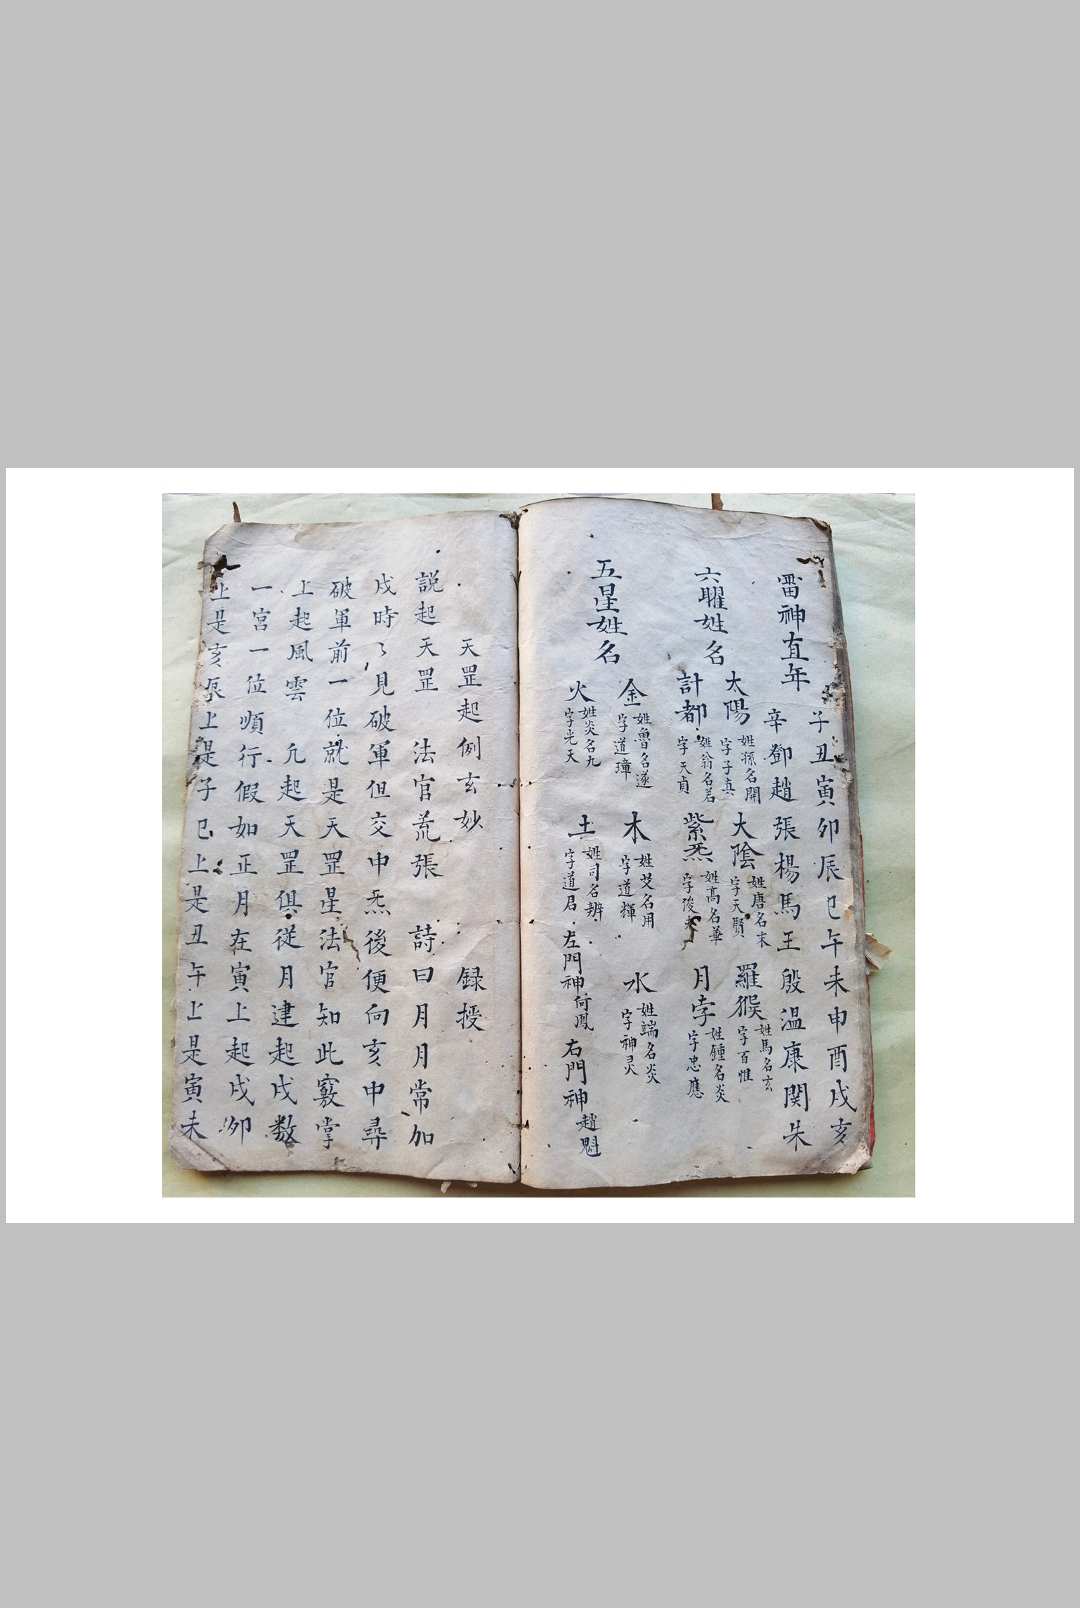 子丑寅卯辰巳午未申酉戌亥
雷神直年
辛鄧趙張楊馬王殷温康関朱
六曜姓名
太陽 姓孫名開 字子真 太陰 姓唐名末 字天賢 羅猴 姓馬名玄 字百惟
計都 姓翁名君 字天貞 紫炁 姓高名華 月孛 姓鍾名炎 字忠應
五星姓名
金 姓魯名遂 字道璋 木 姓艾名用 字道輝 水 姓端名炎 字神灵
火 姓炎名九 字光天 土 姓司名辨 字道居 左門神何鳳 右門神趙魁
天罡起例玄妙 録授
説起天罡 法官荒張 詩曰月月常加
戌時〻見破軍但交中炁後便向亥中尋
破軍前一位就是天罡星法官知此竅掌
上起風雲 凢起天罡俱從月建起戌数
一宮一位順行假如正月在寅上起戌卯
上是亥辰上是子巳上是丑午上是寅未